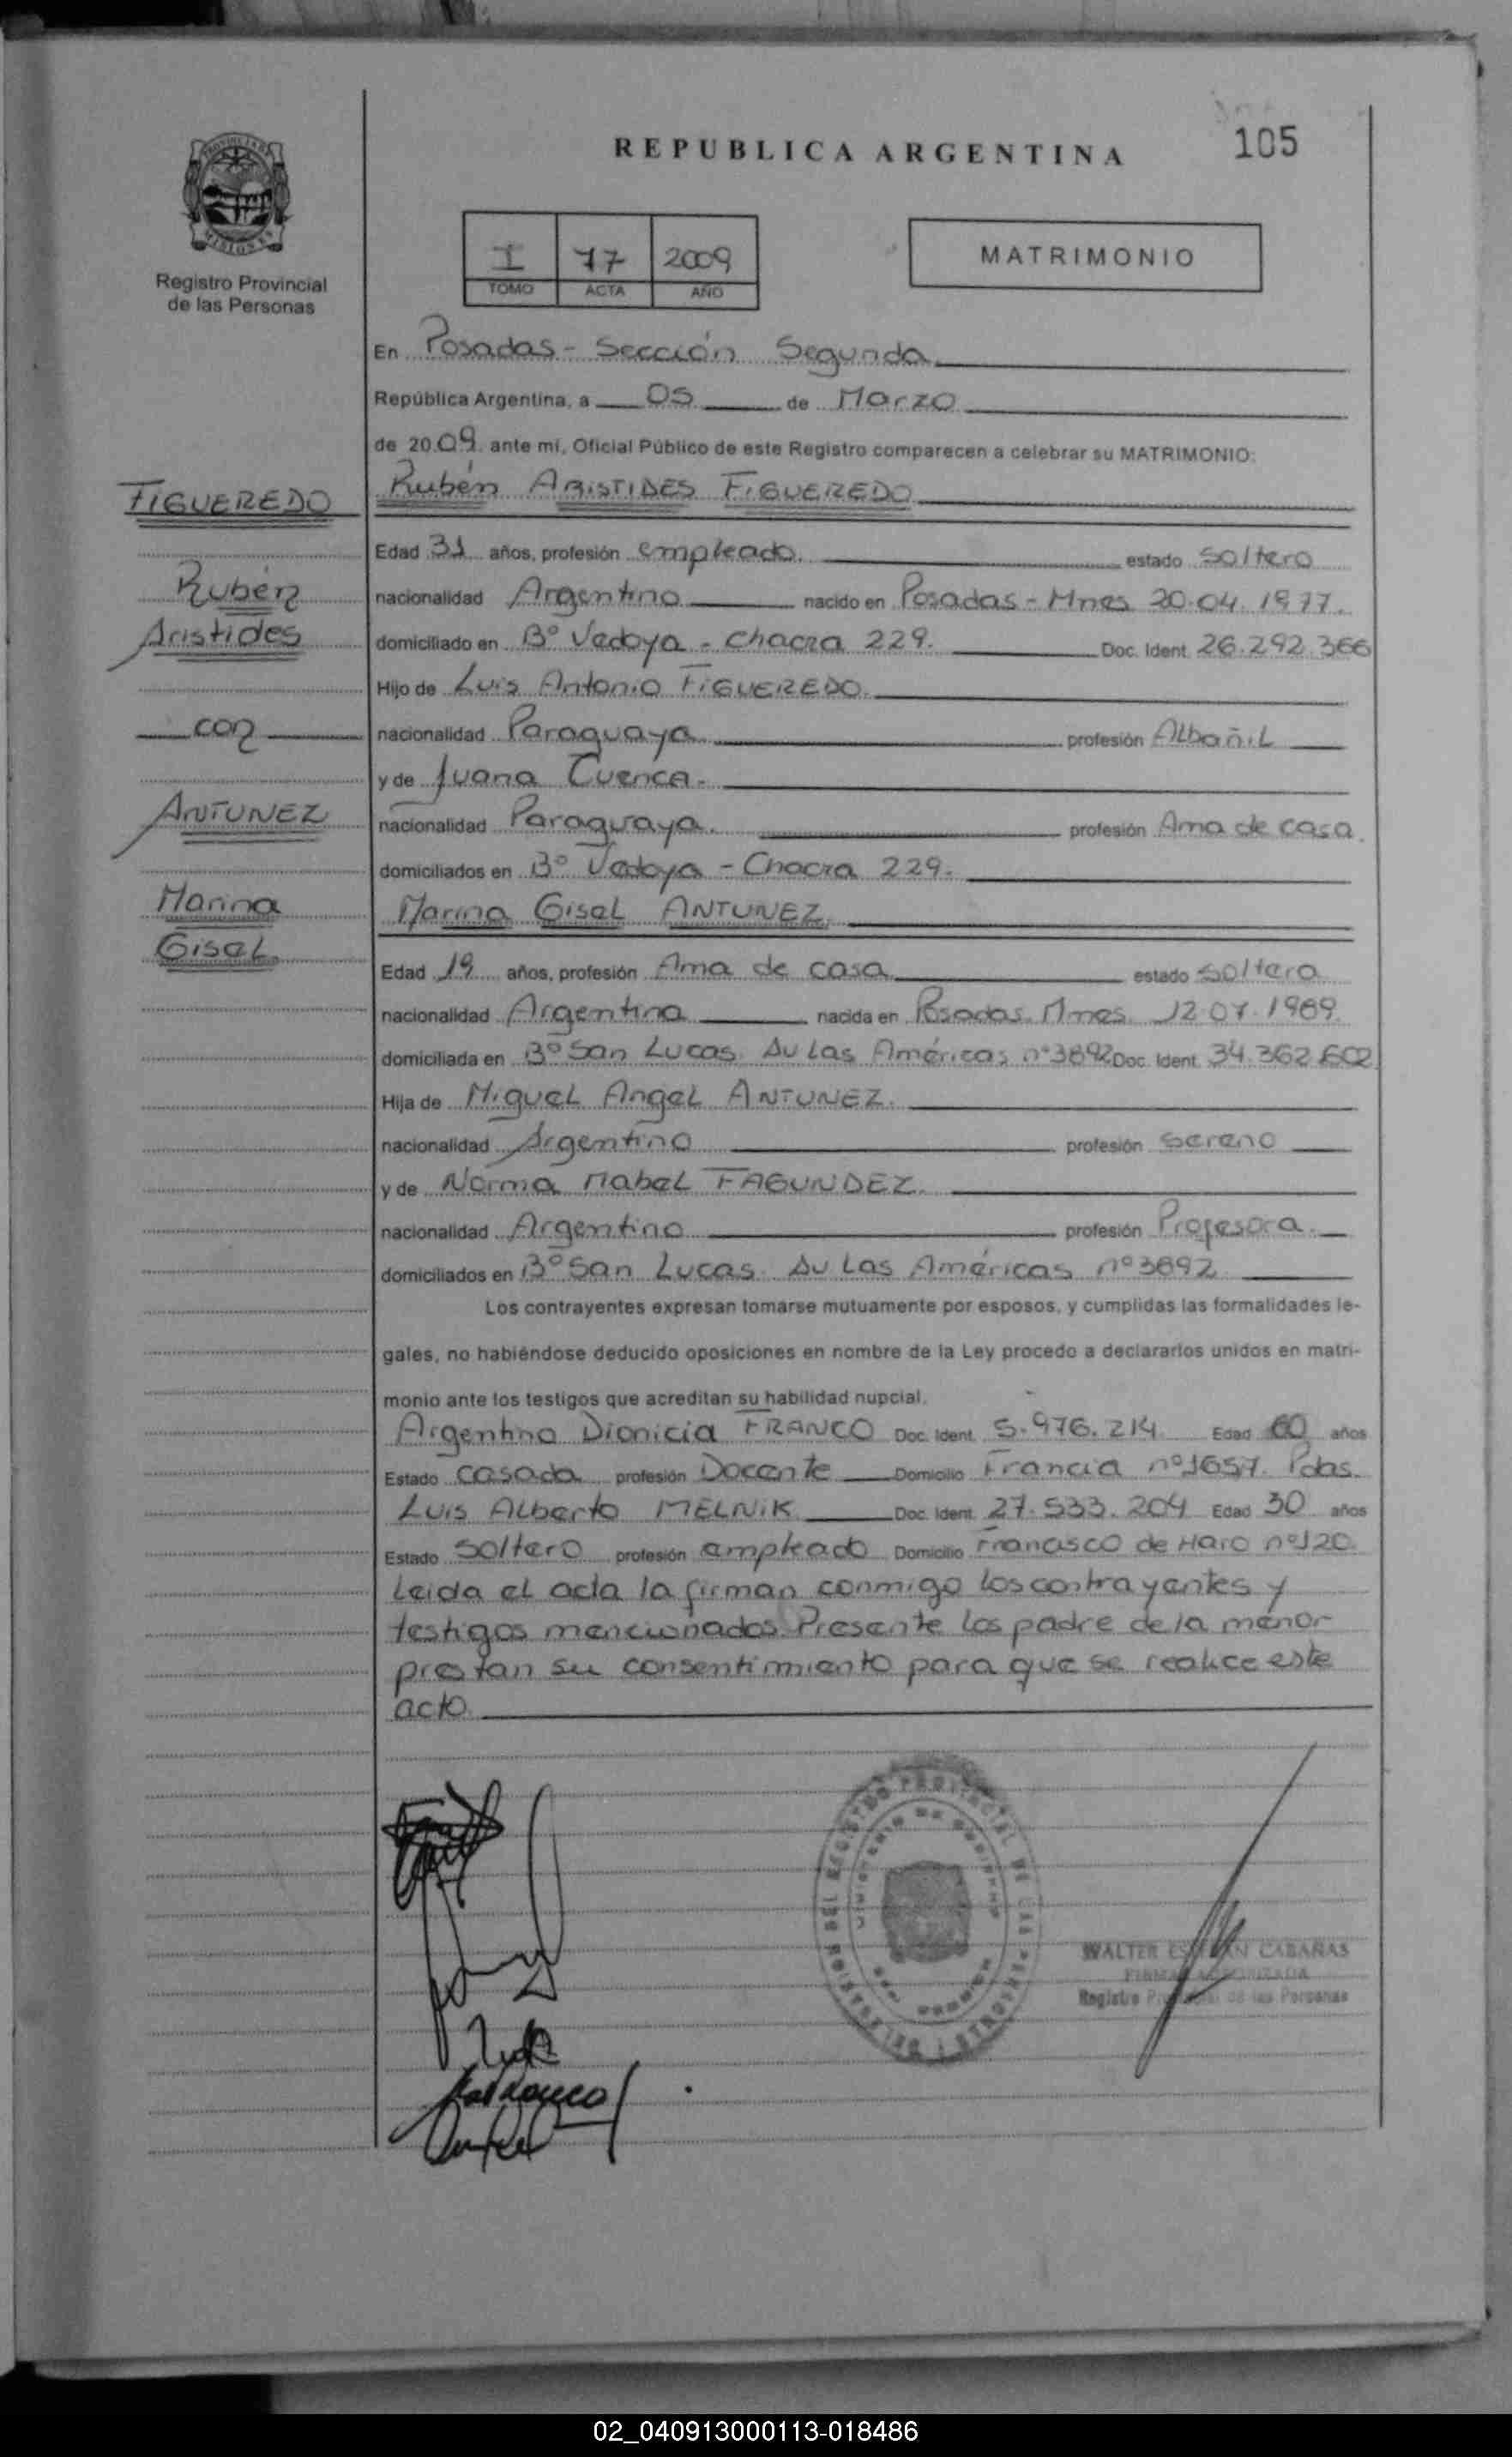 REPUBLICA ARGENTINA
105
PROVINCIA DE MISIONES
Registro Provincial
de las Personas
I 77 2009
TOMO ACTA AÑO
MATRIMONIO
En Posadas - Sección Segunda
República Argentina, a 05 de Marzo
de 2009 ante mi, Oficial Público de este Registro comparecen a celebrar su MATRIMONIO:
FIGUEREDO
Rubén
Aristides
con
ANTUNEZ
Marina
Gisel
Rubén ARISTIDES FIGUEREDO
Edad 31 años, profesión empleado. estado soltero
nacionalidad Argentino nacido en Posadas - Mnes 20.04.1977.
domiciliado en Bº Vedoya - Chacra 229. Doc. Ident. 26.292.366
Hijo de Luis Antonio FIGUEREDO.
nacionalidad Paraguaya profesión Albañil
y de Juana Cuenca.
nacionalidad Paraguaya. profesión Ama de casa.
domiciliados en Bº Vedoya - Chacra 229.
Marina Gisel ANTUNEZ
Edad 19 años, profesión Ama de casa estado soltera
nacionalidad Argentina nacida en Posadas. Mnes. 12.07.1989.
domiciliada en Bº San Lucas. Av Las Américas nº3892 Doc. Ident. 34.362.602
Hija de Miguel Angel ANTUNEZ.
nacionalidad Argentino profesión sereno
y de Norma Mabel FAGUNDEZ.
nacionalidad Argentino profesión Profesora.
domiciliados en Bº San Lucas. Av Las Américas nº3892
Los contrayentes expresan tomarse mutuamente por esposos, y cumplidas las formalidades le-
gales, no habiéndose deducido oposiciones en nombre de la Ley procedo a declararlos unidos en matri-
monio ante los testigos que acreditan su habilidad nupcial.
Argentina Dionicia FRANCO Doc. Ident. 5.976.214 Edad 60 años
Estado casada profesión Docente Domicilio Francia nº1657. Pdas.
Luis Alberto MELNIK Doc. Ident. 27.533.204 Edad 30 años
Estado Soltero profesión empleado Domicilio Francisco de Haro nº120
Leida el acta la firman conmigo los contrayentes y
testigos mencionados. Presente los padre de la menor
prestan su consentimiento para que se realice este
acto.
WALTER CABAÑAS
FIRMA AUTORIZADA
Registro Provincial de las Personas
02_040913000113-018486